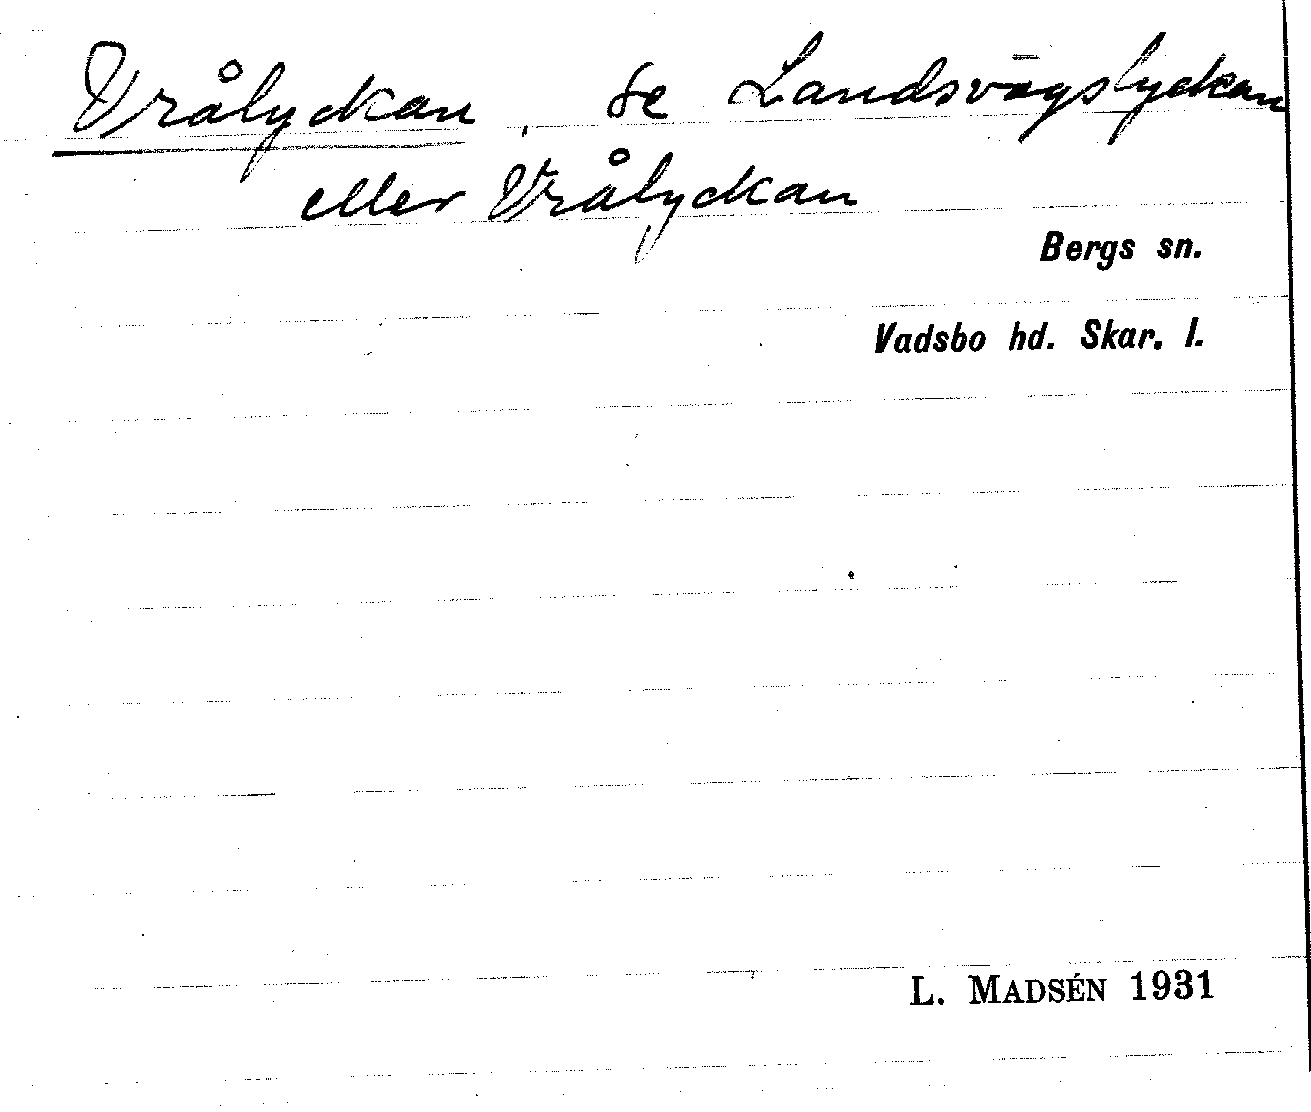 Vrålyckan, se Landsvägslyckan
eller Vrålyckan
Bergs sn.
Vadsbo hd. Skar. l.
L. MADSÉN 1931